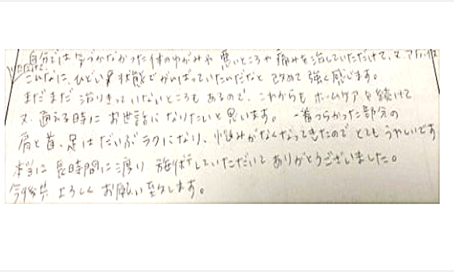 自分では気づかなかった体のゆがみや悪いところや痛みを治していただけて、又、
こんなに、ひどい状態でがんばっていたんだなと改めて強く感じます。
まだまだ治りきっていないところもあるので、これからもホームケアを続けて
又、通える時にお世話になりたいと思います。一番つらかった部分の
肩と首、足はだいぶラクになり、悩みがなくなってきたのでとてもうれしいです
本当に長時間に渡り施術していただいてありがとうございました。
今後共よろしくお願い致します。